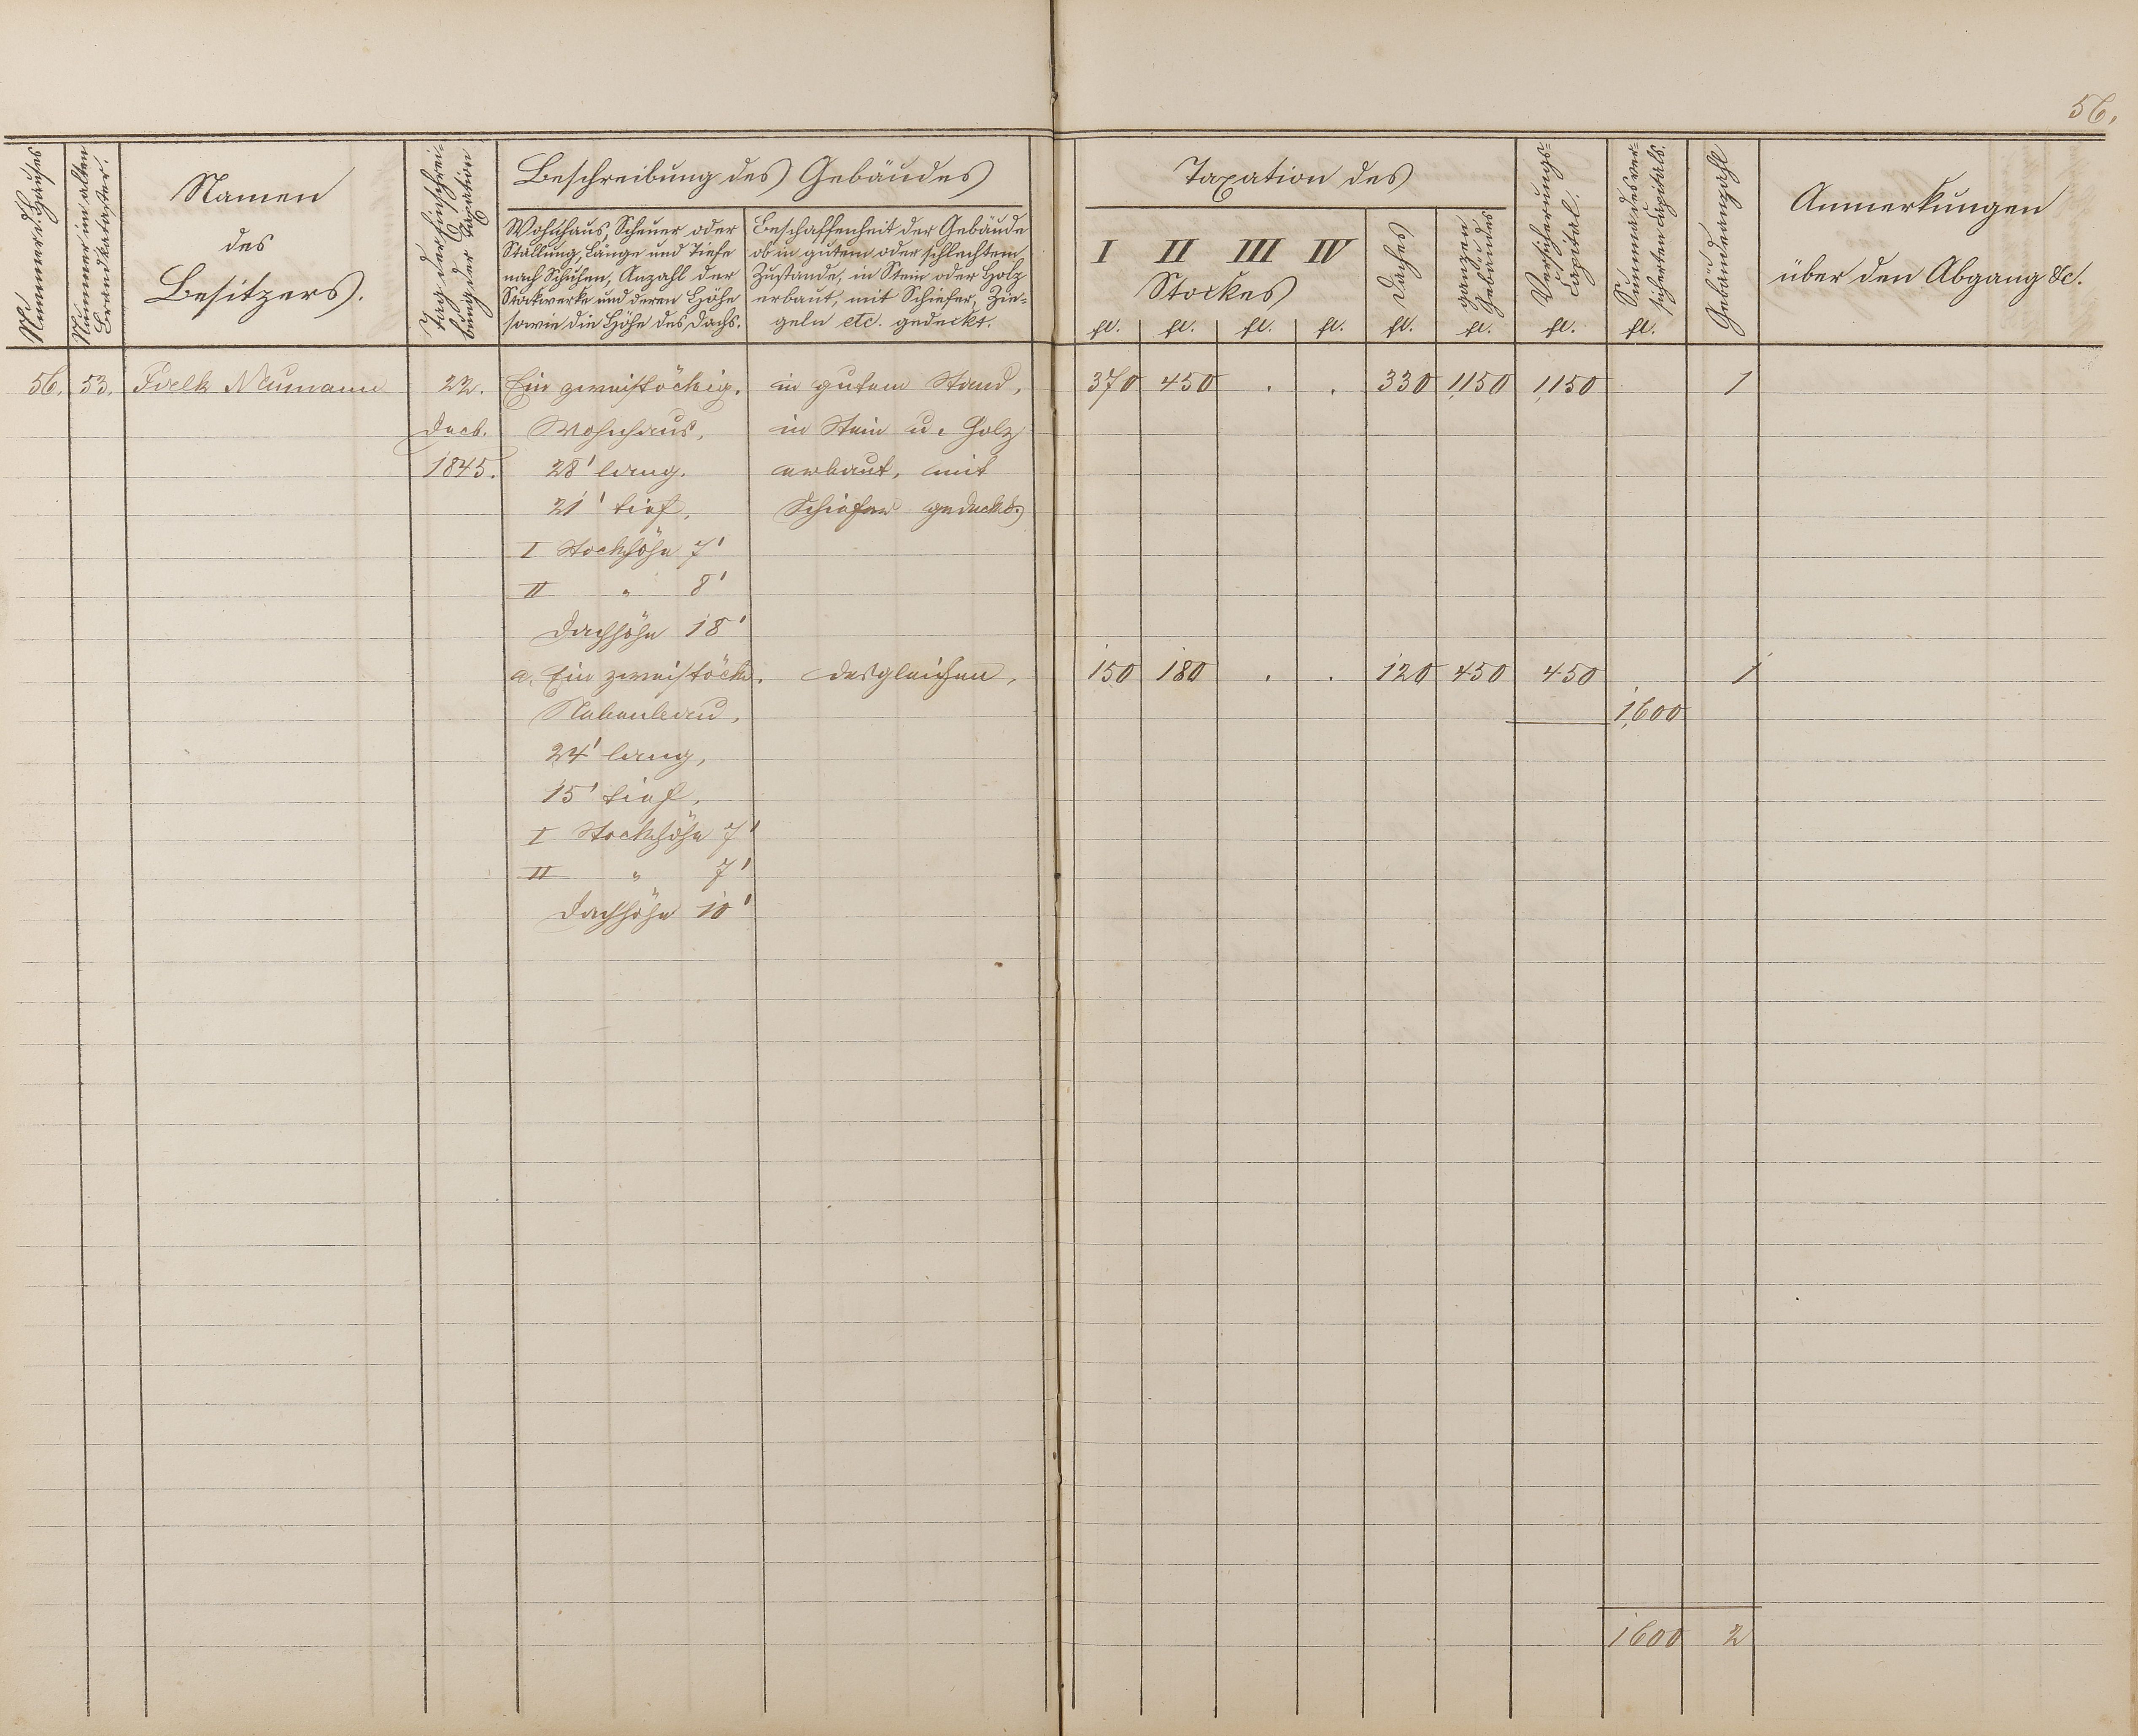 56.
Nummer d. Hauses
Nummer im alten
Brandkataster.
Namen
des
Besitzers.
Tag der Einschrei-
bung der Taxation
Beschreibung des Gebäudes
Wohnhaus, Scheuer oder
Stallung, Länge und Tiefe
nach Schuhen, Anzahl der
Stockwerke und deren Höhe
sowie die Höhe des Dachs.
Beschaffenheit der Gebäude
ob in gutem oder schlechtem
Zustande, in Stein oder Holz
erbaut, mit Schiefer, Zie-
geln etc. gedeckt.
Taxation des
I II III IV
Stockes
Daches
ganzen
Gebäudes
Versicherungs-
Capital.
Summa des ver-
sicherten Capitals.
Gebäudeanzahl
Anmerkungen
über den Abgang &c.
fl. fl. fl. fl. fl. fl. fl. fl.
56. 53. Neumann 22. Ein zweistöckig. in gutem Stand, 370 450 . . 330 1,150 1,150 1
Decb. Wohnhaus, in Stein u. Holz
1845. 28' lang. erbaut, mit
21' tief, Schiefer gedeckt.
I Stockhöhe 7'
II " 8'
Dachhöhe 18'
a. Ein zweistöck. desgleichen, 150 180 . . 120 450 450 1
Nebenbau, 1,600
24' lang,
15' tief,
I Stockhöhe 7'
II " 7'
Dachhöhe 10'
1600 2